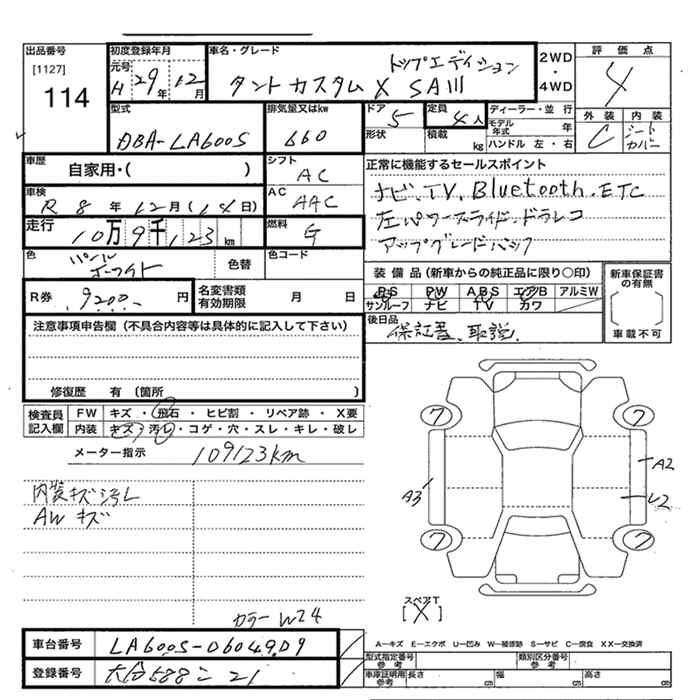 出品番号
[1127]
114
初度登録年月
元号
H 29年 12月
車名・グレード
トップエディション
タント カスタム X SAIII
2WD
・
4WD
評価点
4
外装 内装
C シートカバー
型式
DBA-LA600S
排気量又はkw
660
ドア 5
形状
定員 4人
積載 kg
ディーラー・並行
モデル年式 年
ハンドル 左・右
車歴
自家用・( )
シフト
AC
車検
R 8年 12月(14日)
AC
AAC
走行
10万9千123km
燃料
G
正常に機能するセールスポイント
ナビ.TV.Bluetooth.ETC
左パワースライド.ドラレコ
アップグレードパック
色
パール
ホワイト
色替
色コード
R券 9200 円
名変書類
有効期限 月 日
装備品(新車からの純正品に限り○印)
PS PW ABS エアB アルミW
サンルーフ ナビ TV カワ
新車保証書の有無
車載不可
後日品
保証書、取説
注意事項申告欄(不具合内容等は具体的に記入して下さい)
修復歴 有(箇所 )
検査員記入欄
FW キズ・飛石・ヒビ割・リペア跡・X要
内装 キズ・汚れ・コゲ・穴・スレ・キレ・破レ
メーター指示 109123km
内装キズ汚レ
AWキズ
カラー W24
7 7
A3
A2
U2
7 7
スペアT
[X]
車台番号 LA600S-0604909
登録番号 大分588こ21
A…キズ E…エクボ U…凹み W…補修跡 S…サビ C…腐食 XX…交換済
型式指定番号 参考
類別区分番号 参考
車庫証明用 参考
長さ cm 幅 cm 高さ cm